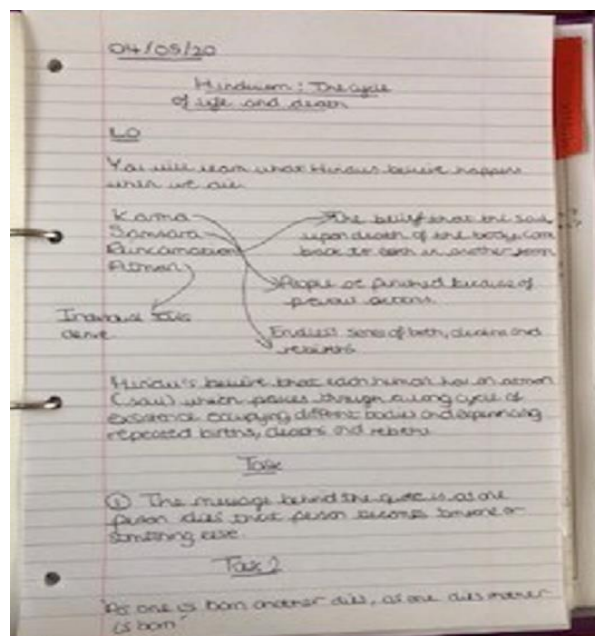 04/05/20
Hinduism: The cycle
of life and death
LO
You will learn what Hindus believe happens
when we die.
Karma
Samsara
Reincarnation
Atman
The belief that the soul
upon death of the body, come
back to earth in another form
People are punished because of
previous actions.
Individual souls
Endless series of birth, deaths and
rebirths
Hindu's believe that each human has an atman
(soul) which passes through a long cycle of
existence occupying different bodies and experiencing
repeated births, deaths and rebirths
Task
① The message behind the quote is as one
person dies that person becomes someone or
something else.
Task 2
"As one is born another dies, as one dies another
is born"